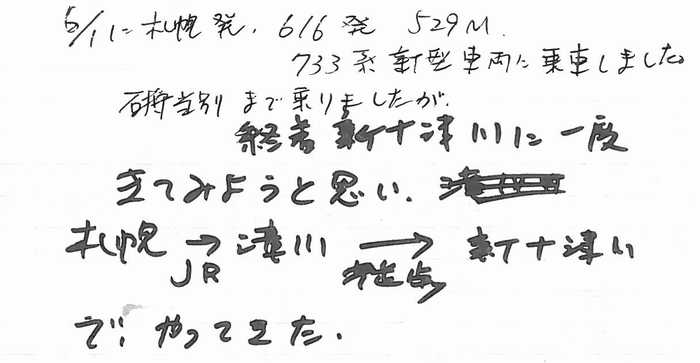 6/1に札幌発、616発 529M.
733系新型車両に乗車しました。
石狩当別まで乗りましたが、
終着新十津川に一度
きてみようと思い、
札幌 → 滝川 → 新十津川
JR 徒歩
で、やってきた.